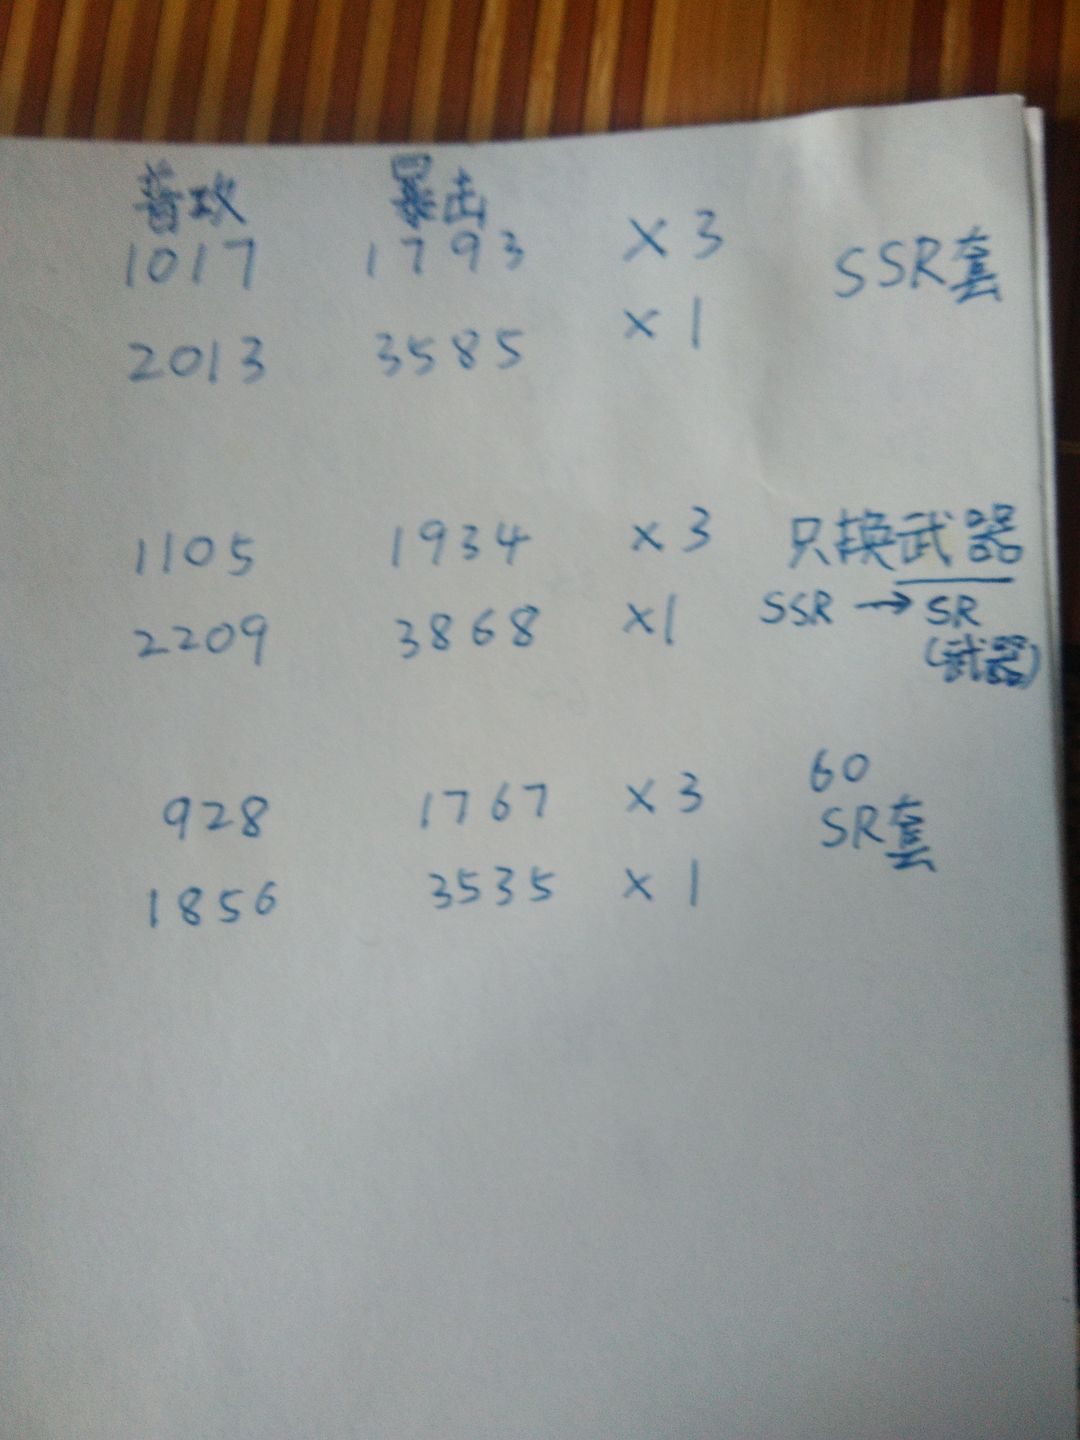 普攻 暴击
1017 1793 ×3 SSR套
2013 3585 ×1
1105 1934 ×3 只换武器
2209 3868 ×1 SSR → SR
(武器)
60
928 1767 ×3 SR套
1856 3535 ×1